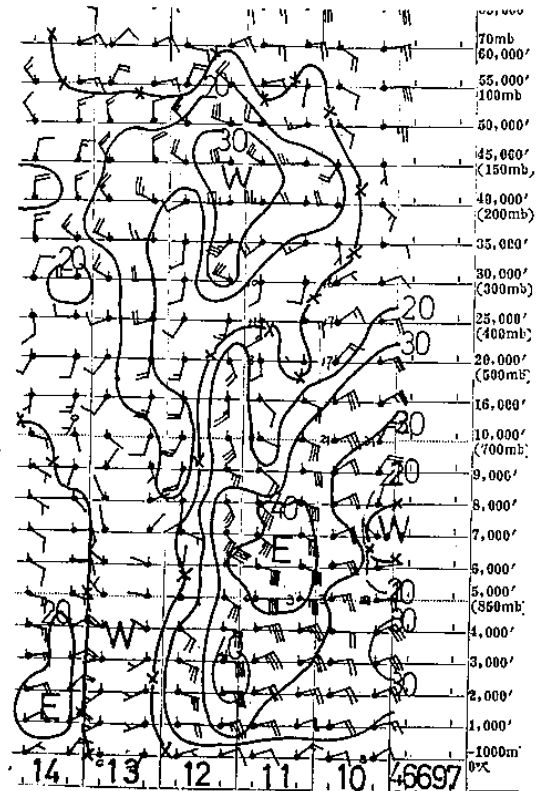 70mb
60,000'
55,000'
100mb
50,000'
45,000'
(150mb)
40,000'
(200mb)
35,000'
30,000'
(300mb)
25,000'
(400mb)
20,000'
(500mb)
16,000'
10,000'
(700mb)
9,000'
8,000'
7,000'
6,000'
5,000'
(850mb)
4,000'
3,000'
2,000'
1,000'
-1000m
20
30
W
20
20
30
30
20
40
E
W
20
W
E
30
14 13 12 11 10 46697